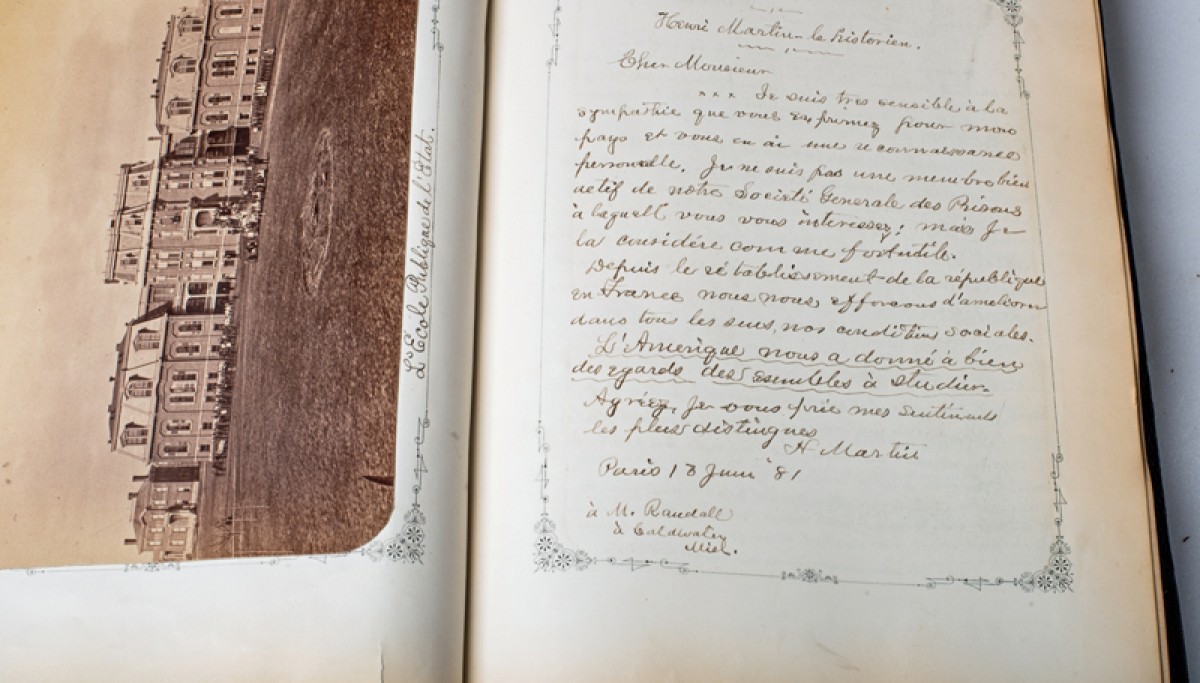 L'École Publique de l'État.
Henri Martin - le historien.
Cher Monsieur
××× Je suis tres sensible à la
sympathie que vous exprimez pour mon
pays et vous en ai une reconnaissance
personelle. Je ne suis pas une membre bien
actif de notre Société Generale des Prisons
à laquell vous vous interessez; mais Je
la considére comme fort utile.
Depuis le rétablissement de la république
en France nous nous efforcons d'ameliorer
dans tous les sens, nos conditions sociales.
L'Amerique nous a donné à bien
des egards des exemples à studier.
Agréez, Je vous prie mes sentiments
les plus distingues
H Martin
Paris 18 Juin '81
à M. Randall
à Coldwater
Mich.